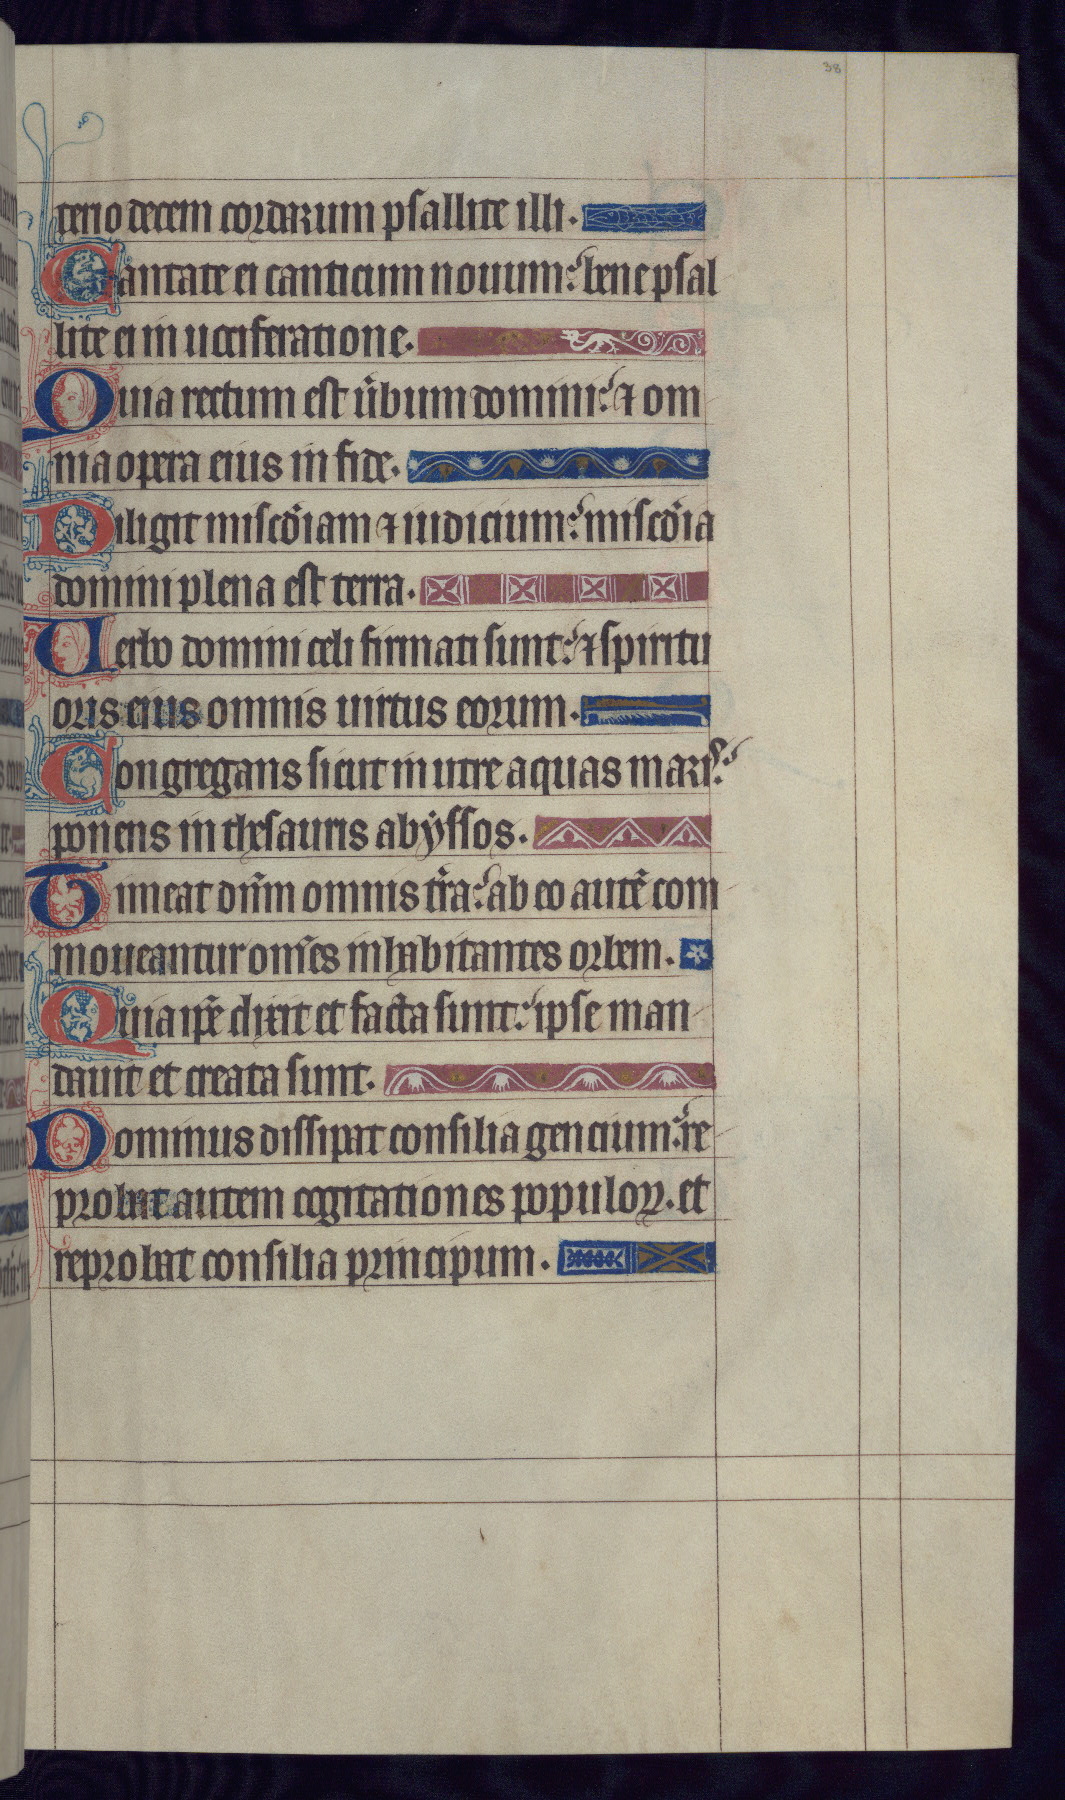 38
terio decem cordarum psallite illi.
Cantate ei canticum nouum: bene psal
lite ei in uociferatione.
Quia rectum est ũbum domini: ⁊ om
nia opera eius in fide.
Diligit miscõiam ⁊ iudicium: miscõia
domini plena est terra.
Uerbo domini celi firmati sunt: ⁊ spiritu
oris eius omnis uirtus eorum.
Congregans sicut in utre aquas maris:
ponens in thesauris abẏssos.
Timeat dñm omnis tr̃a: ab eo autẽ com
moueantur om̃es inhabitantes orbem.
Quia ip̃e dixit et facta sunt: ipse man
dauit et creata sunt.
Dominus dissipat consilia gencium: re
probat autem cogitationes populoꝝ. et
reprobat consilia principum.